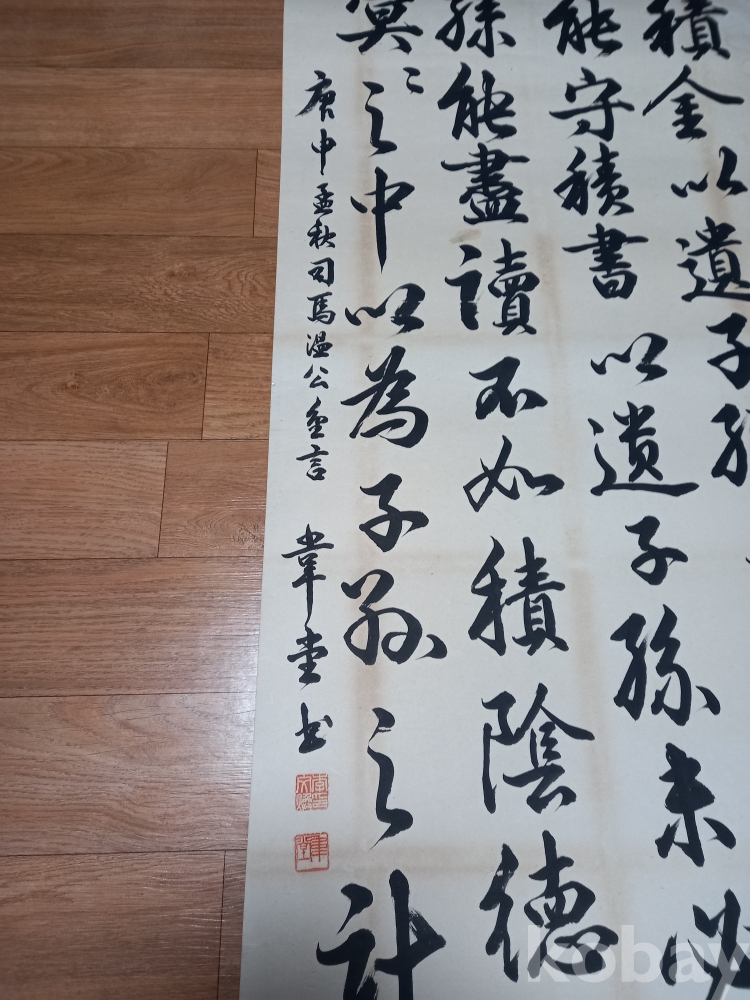 積金以遺子孫
能守積書以遺子孫未必
孫能盡讀不如積陰德
冥〻之中以為子孫之計
庚申孟秋司馬溫公金言
韋堂书
kobay